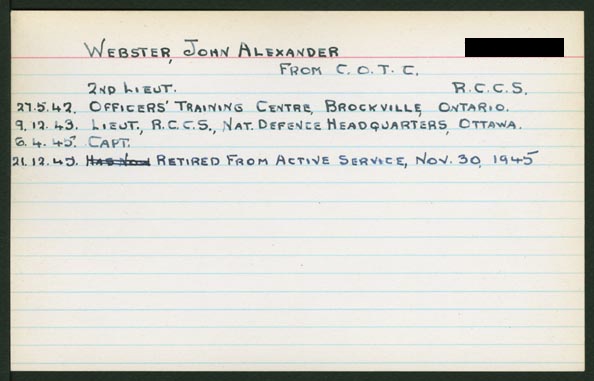 WEBSTER, JOHN ALEXANDER
FROM C.O.T.C.
2ND LIEUT. R.C.C.S.
27.5.42. OFFICERS' TRAINING CENTRE, BROCKVILLE, ONTARIO.
9.12.43. LIEUT., R.C.C.S., NAT. DEFENCE HEADQUARTERS, OTTAWA.
6.4.45. CAPT.
21.12.45. RETIRED FROM ACTIVE SERVICE, NOV. 30, 1945